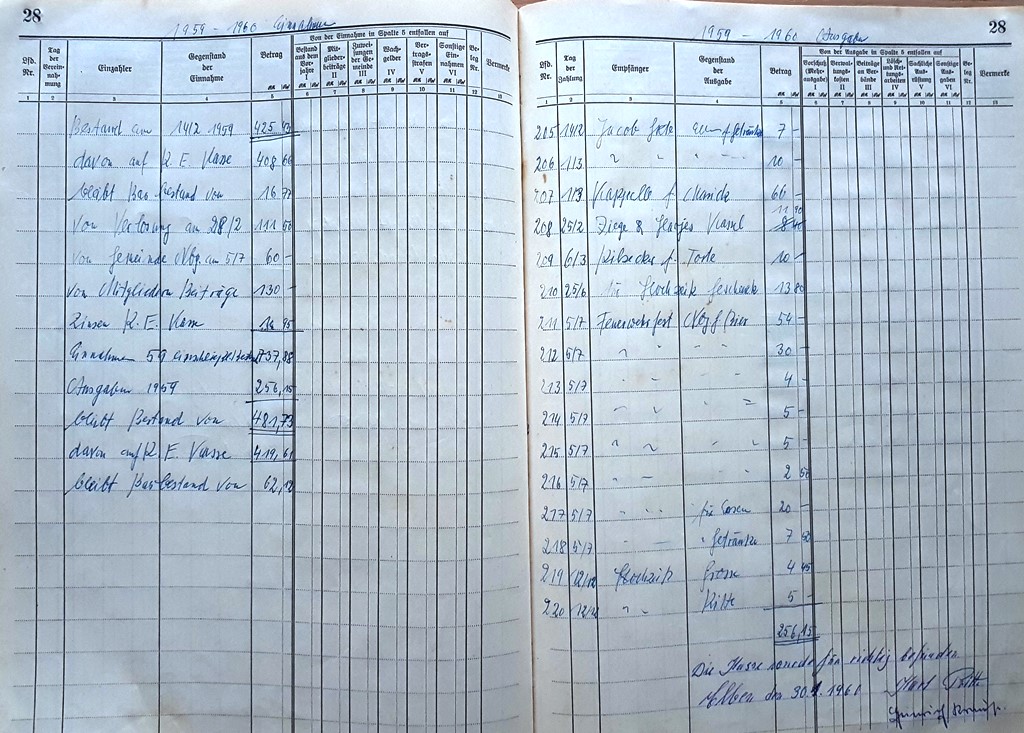 28
1959 - 1960 Einnahmen
Lfd. Nr.
Tag der Vereinnahmung
Einzahler
Gegenstand der Einnahme
Betrag
Von der Einnahme in Spalte 5 entfallen auf
Bestand aus dem Vorjahre I
Mitgliederbeiträge II
Zuweisungen der Gemeinde III
Wachgelder IV
Vertragsstrafen V
Sonstige Einnahmen VI
Beleg Nr.
Vermerke
1 2 3 4 5 6 7 8 9 10 11 12 13
Bestand am 14/2 1959 425 43
davon auf K. E. Kasse 408 66
bleibt Bar bestand von 16 77
von Verlosung am 28/2 111 50
von Gemeinde Nbg. am 5/7 60 -
von Mitgliedern Beiträge 130 -
Zinsen K. E. Kasse 95
Einnahmen 59 737,88
Ausgaben 1959 256,15
bleibt Bestand von 481,73
davon auf K. E. Kasse 419,61
bleibt Barbestand von 62,12
28
1959 - 1960 Ausgabe
Lfd. Nr.
Tag der Zahlung
Empfänger
Gegenstand der Ausgabe
Betrag
Von der Ausgabe in Spalte 5 entfallen auf
Vorschuß (Mehrausgabe) I
Verwaltungskosten II
Beiträge an Verbände III
Lösch- und Rettungsarbeiten IV
Sachliche Ausrüstung V
Sonstige Ausgaben VI
Beleg Nr.
Vermerke
1 2 3 4 5 6 7 8 9 10 11 12 13
205 14/2 Jacob f Getränke 7 -
206 1/3 " " " 10 -
207 1/3 Kappelle f. Musick 66 -
11 90
208 25/2 Ziege & Kassel 8 40
209 6/3 f. Torte 10 -
210 25/6 für Hochzeit Geschenk 13 80
211 5/7 Feuerwehrfest Nbg f Bier 54 -
212 5/7 " " " " 30 -
213 5/7 " " " " 4 -
214 5/7 " " " " 5 -
215 5/7 " " " " 5 -
216 5/7 " " " 2 50
217 5/7 " " für Essen 20 -
218 5/7 " " " Getränke 7
219 12/12 Hochzeit Grosse 4 45
220 12/12 " " 5 -
256,15
Die Kasse wurde für richtig befunden
Elben den 30.1.1960 Karl
Heinrich